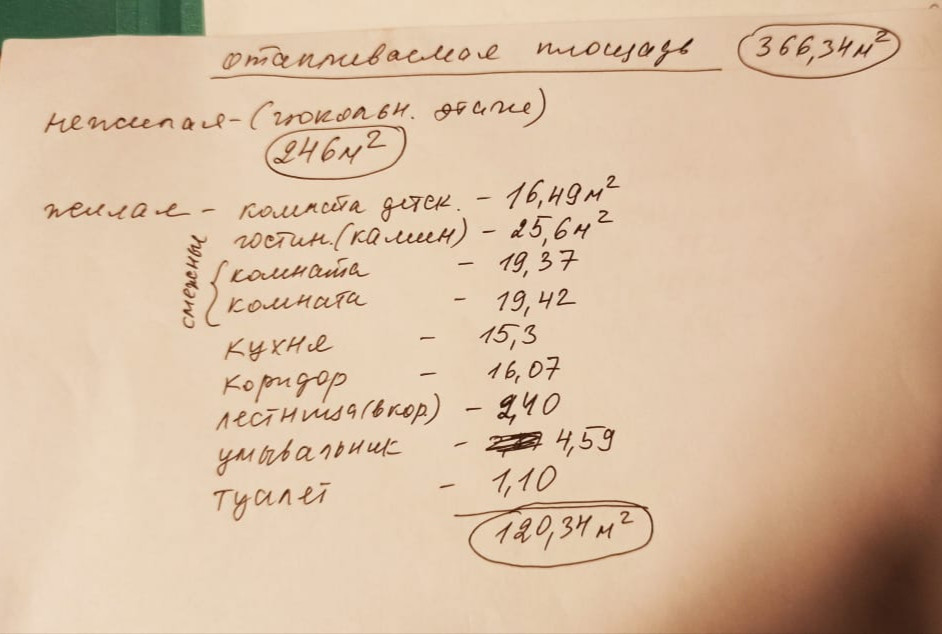 отапливаемая площадь 366,34 м²
нежилая - (цокольн. этаж)
246 м²
жилая - комната детск. - 16,49 м²
гостин. (камин) - 25,6 м²
смежные { комната - 19,37
комната - 19,42
кухня - 15,3
коридор - 16,07
лестница (в кор) - 2,40
умывальник - 4,59
туалет - 1,10
120,34 м²